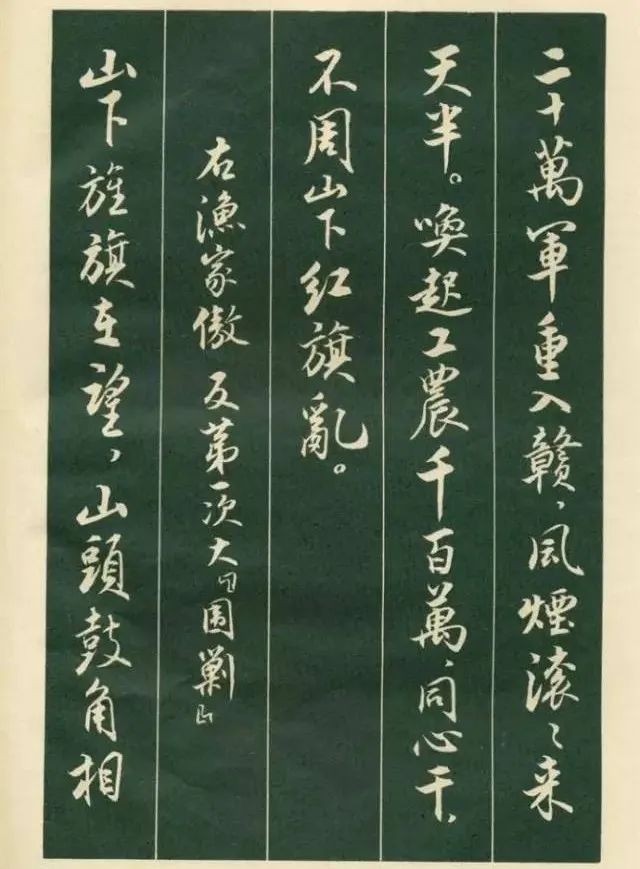 二十萬軍重入贛，風煙滾〻来
天半。喚起工農千百萬，同心干，
不周山下红旗亂。
右漁家傲 反第一次大「圍剿」
山下旌旗在望，山頭鼓角相